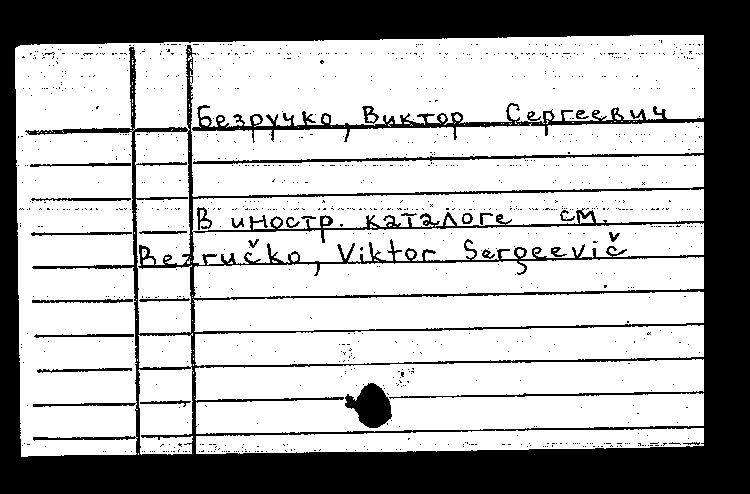 Безручко, Виктор Сергеевич
В иностр. каталоге см.
Bezručko, Viktor Sergeevič